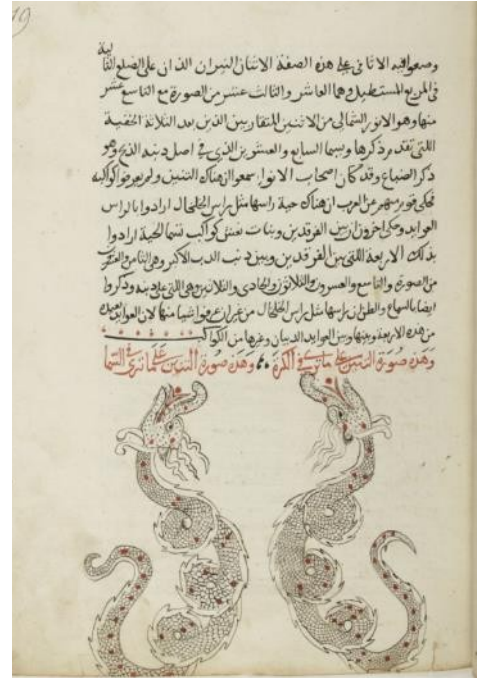 19
وصعوافيه الاثافى على هذه الصفة الاثنان النيران الذان على الضلع التا
لية
فى المربع المستطيل وهما العاشر والثالث عشر من الصورة مع التاسع عشر
منها وهو الانور الشمالى من الاثنين المتقاربين الذين بعد الثلاثة الخفية
اللتى تقدم ذكرها ويسما السابع والعشرين الذى فى اصل ذنبه الذيخ وهو
ذكر الضباع وقد كان اصحاب الانوا سمعوا ان هناك التنين ولم يعرفوا كواكبه
فحكى قوم منهم عن العرب ان هناك حية راسها مثل راس الخلخال ارادوا بالراس
العوايد وحكى اخرون ان بين الفرقدين وبنات نعش كواكب تسما الحية ارادوا
بذلك الاربعة اللتى بين الفرقدين وبين ذنب الدب الاكبر وهى الثامن والعشرون
من الصورة والتاسع والعشرون والثلاثون والحادى والثلاثين وهى اللتى على ذنبه وذكروا
ايضا بالسماع والظن ان راسها مثل راس الخلخال من غير ان عرفوا شيا منها لان العوايد بعيدة
من هذه الاربعة وبينها وبين العوايد الذيبان وغيرها من الكواكب
وهذه صورة التنين على ما ترى فى الكرة وهذه صورة التنين على ما ترى فى السما